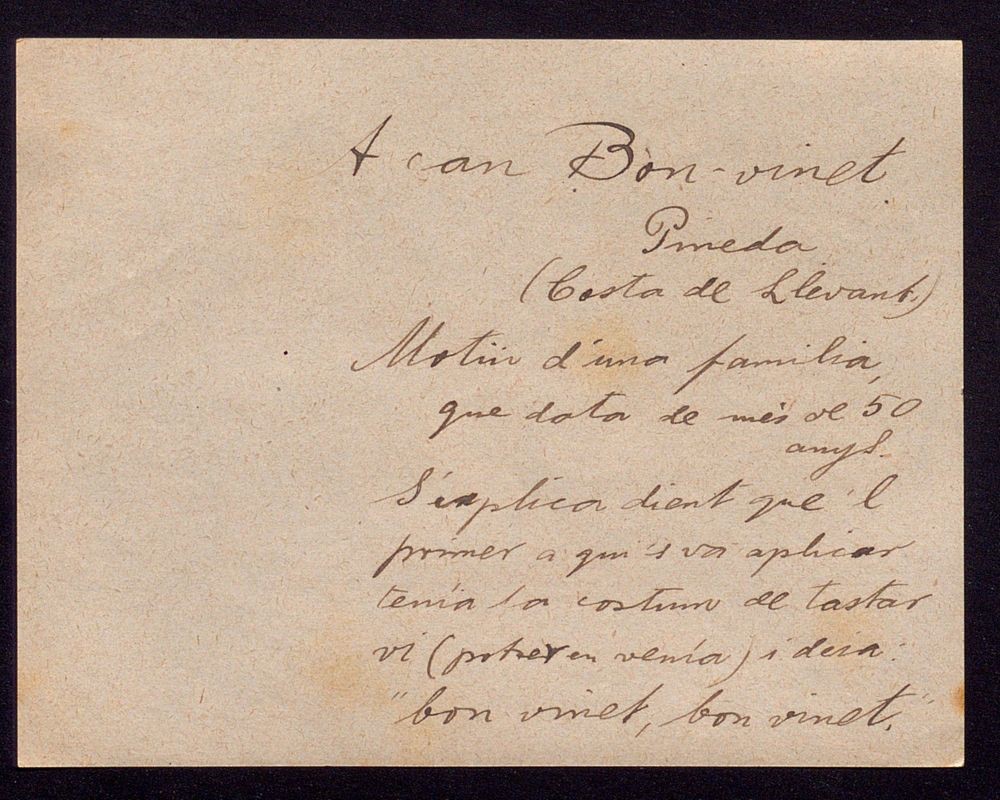 A can Bon-vinet
Pineda
(Costa de Llevant)
Motiu d'una familia,
que data de més de 50
anys.
S'explica dient que 'l
primer a qui 's va aplicar
tenía la costum de tastar
vi (potser en venía) i deia:
"bon vinet, bon vinet."